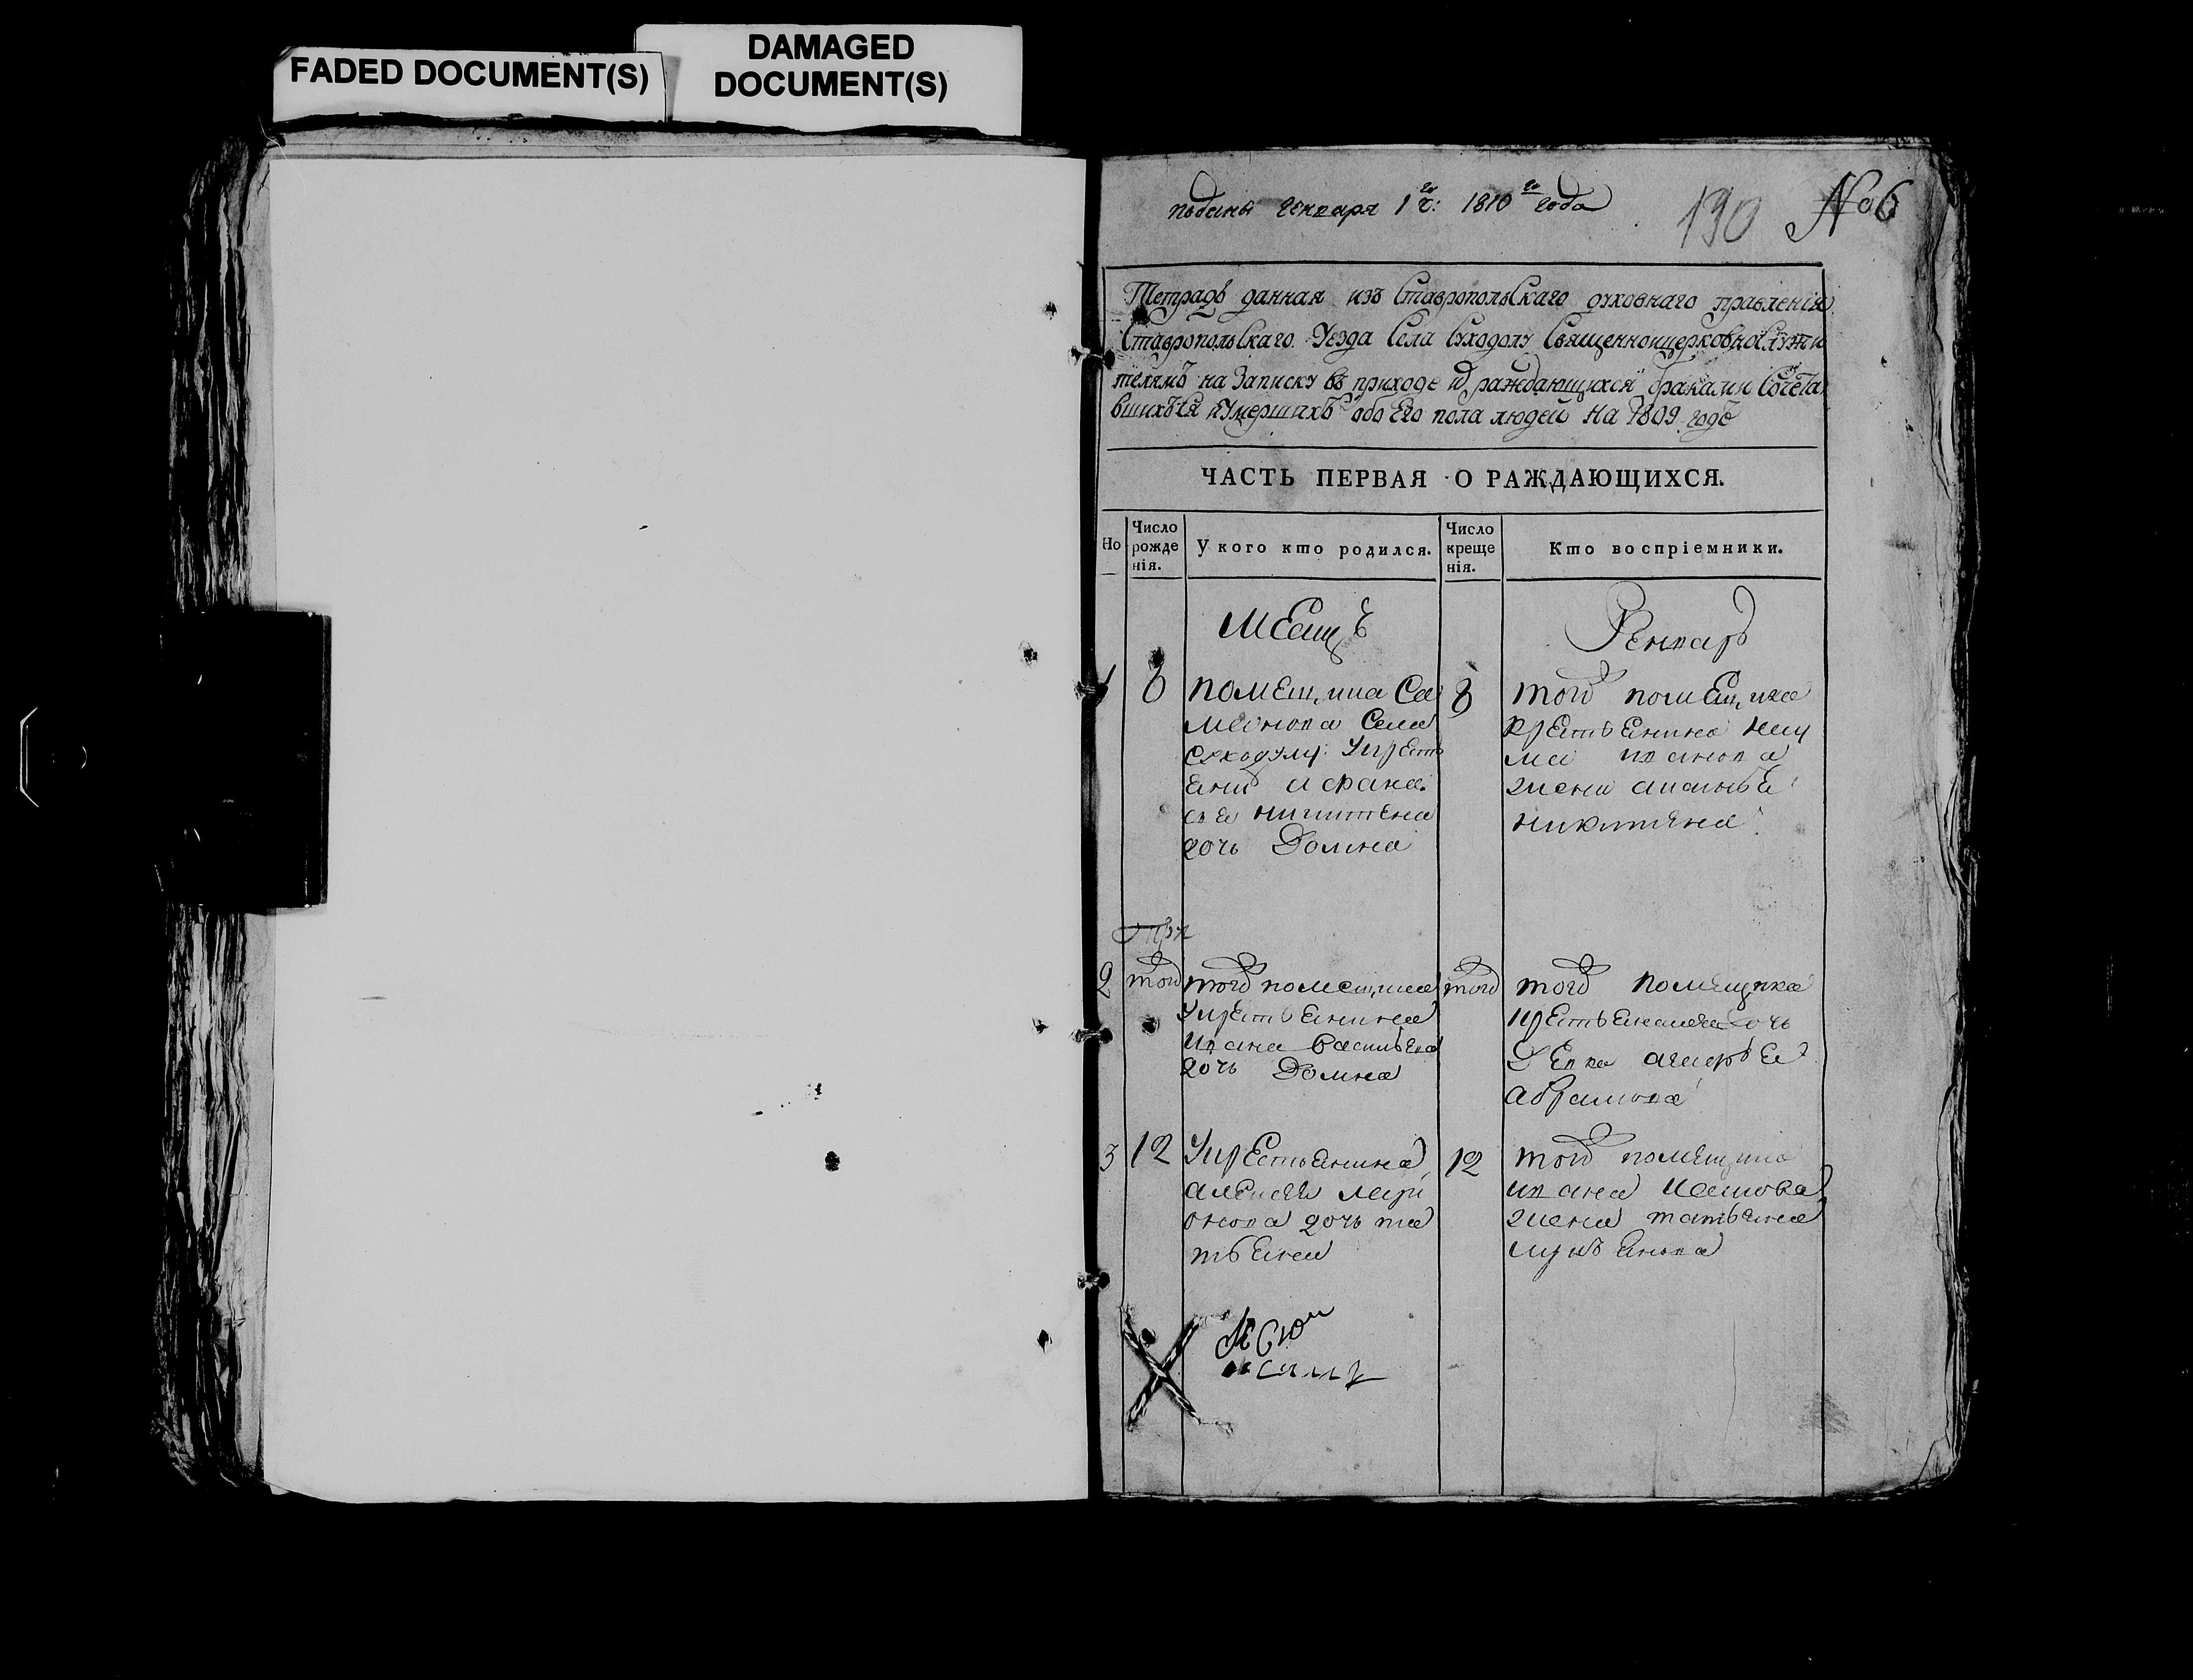 FADED DOCUMENT(S)
DAMAGED
DOCUMENT(S)
поданы генваря 1 го ч: 1810 го года
190 No 6
Тетрадь данная изъ Ставропольскаго духовнаго правленія
Ставропольскаго Уезда Села Суходолу Священноцерковнослужи
телямъ на Записку въ приходе их раждающихся браками Сочета
вшихъся и Умершихъ обоего пола людей на 1809 годъ
ЧАСТЬ ПЕРВАЯ О РАЖДАЮЩИХСЯ.
Но
Число рожде нія.
У кого кто родился.
Число креще нія.
Кто воспріемники.
Месяцъ
Генварь
1
8
помещика Са
монова Села
Суходулу: укрест
ени афана
никитина
дочь Домна
8
того помещика
крестьенина
ма иванова
жена
никитина
2
того
того помещика
укрестьенина
ивана Васильева
дочь Домна
того
того помещика
дочь
Девка
абрамова
3
12
укрестьенина
алексея лари
онова дочь та
тьена
12
того помещика
ивана
жена татьена